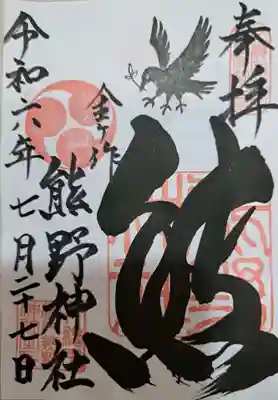 奉拝
金ヶ作
熊野神社
令和六年七月二十七日